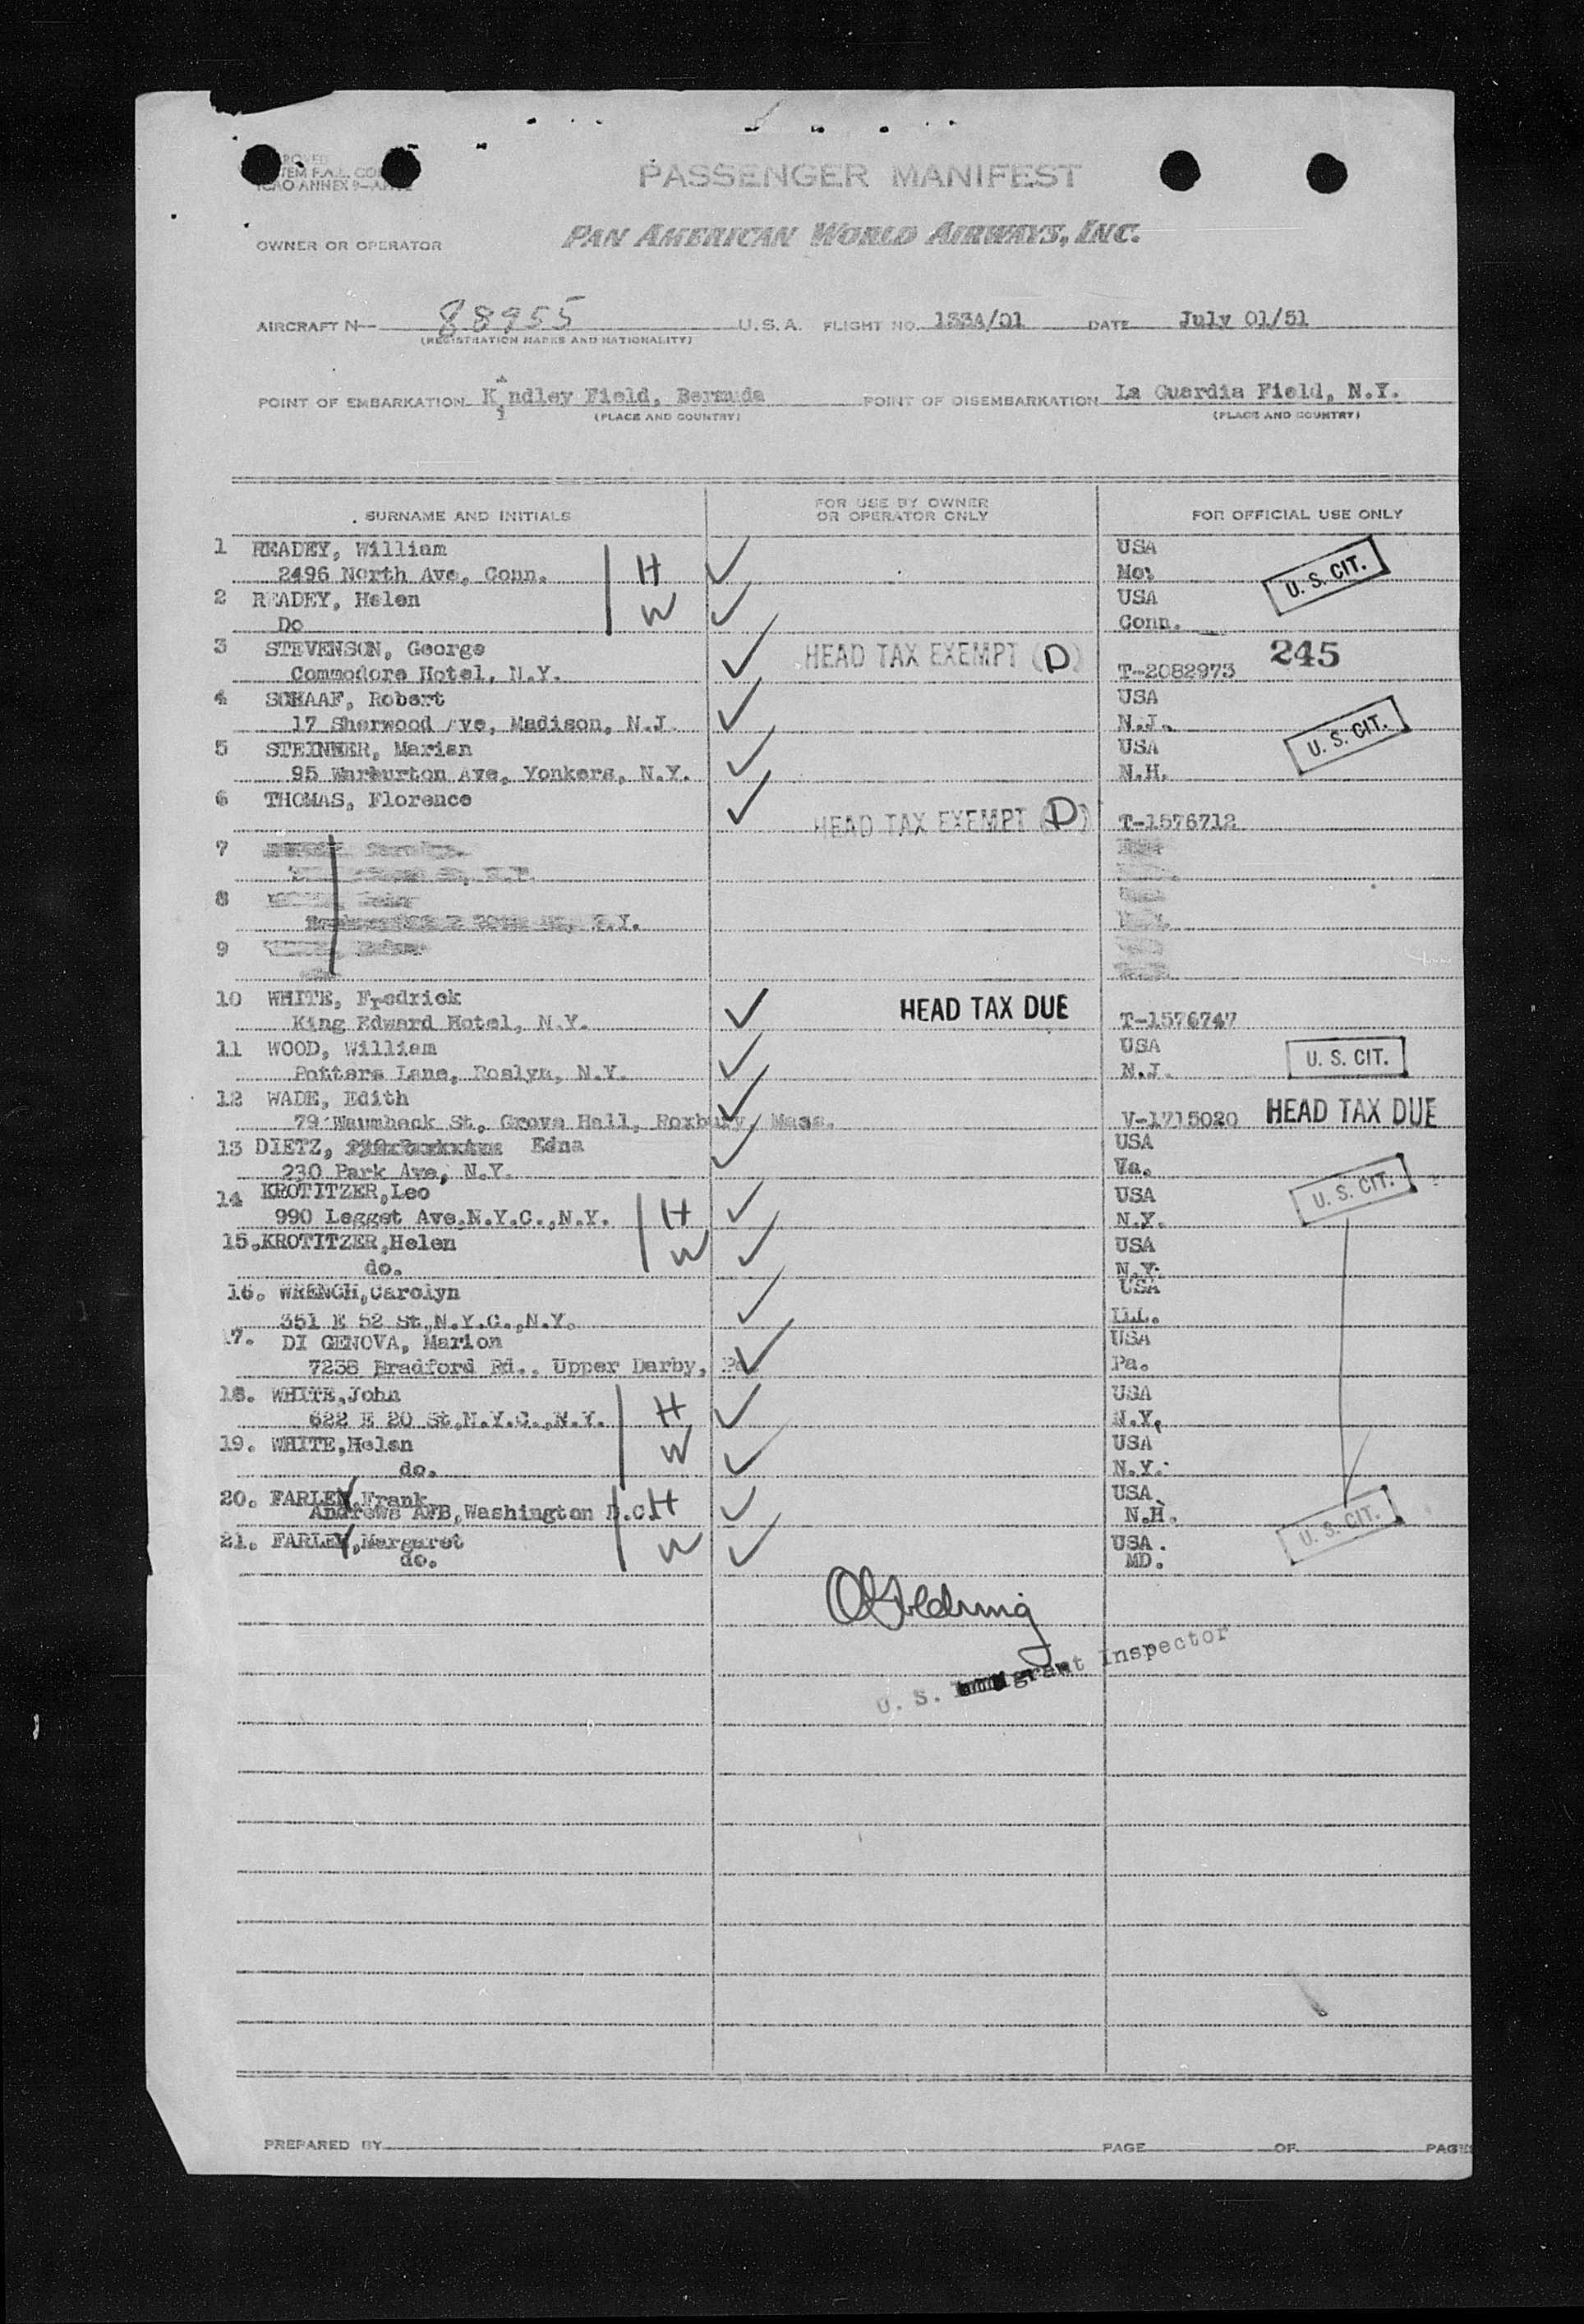 PASSENGER MANIFEST
OWNER OR OPERATOR PAN AMERICAN WORLD AIRWAYS, INC.
AIRCRAFT N— 88955 U.S.A. FLIGHT NO. 133A/01 DATE July 01/51
(REGISTRATION MARKS AND NATIONALITY)
POINT OF EMBARKATION Kindley Field, Bermuda POINT OF DISEMBARKATION La Guardia Field, N.Y.
(PLACE AND COUNTRY) (PLACE AND COUNTRY)
SURNAME AND INITIALS FOR USE BY OWNER OR OPERATOR ONLY FOR OFFICIAL USE ONLY
1 READEY, William USA
2496 North Ave, Conn. H U. S. CIT.
2 READEY, Helen W USA
Do Conn.
3 STEVENSON, George HEAD TAX EXEMPT (D) 245
Commodore Hotel, N.Y. T-2082973
4 SCHAAF, Robert USA
17 Sherwood Ave, Madison, N.J. N.J. U. S. CIT.
5 STEINMER, Marian USA
95 Warburton Ave, Yonkers, N.Y. N.H.
6 THOMAS, Florence
HEAD TAX EXEMPT (D) T-1576712
7
8
N.Y.
9
10 WHITE, Fredrick HEAD TAX DUE
King Edward Hotel, N.Y. T-1576747
11 WOOD, William USA U. S. CIT.
Potters Lane, Roslyn, N.Y. N.J.
12 WADE, Edith
79 Waumback St, Grove Hall, Roxbury, Mass. V-1715020 HEAD TAX DUE
13 DIETZ, Edna USA
230 Park Ave, N.Y. Va.
14 KROTITZER,Leo USA U. S. CIT.
990 Legget Ave.N.Y.C.,N.Y. H N.Y.
15.KROTITZER,Helen W USA
do. N.Y.
16. WRENCH,Carolyn USA
351 E 52 St,N.Y.C.,N.Y. ILL.
17. DI GENOVA, Marion USA
7258 Bradford Rd., Upper Darby, Pa. Pa.
18. WHITE,John USA
622 E 20 St,N.Y.C.,N.Y. H N.Y.
19. WHITE,Helen W USA
do. N.Y.
20. FARLEY,Frank H USA
Andrews AFB,Washington D.C. N.H.
21. FARLEY,Margaret W USA. U. S. CIT.
do. MD.
U. S. Immigrant Inspector
PREPARED BY PAGE OF PAGES